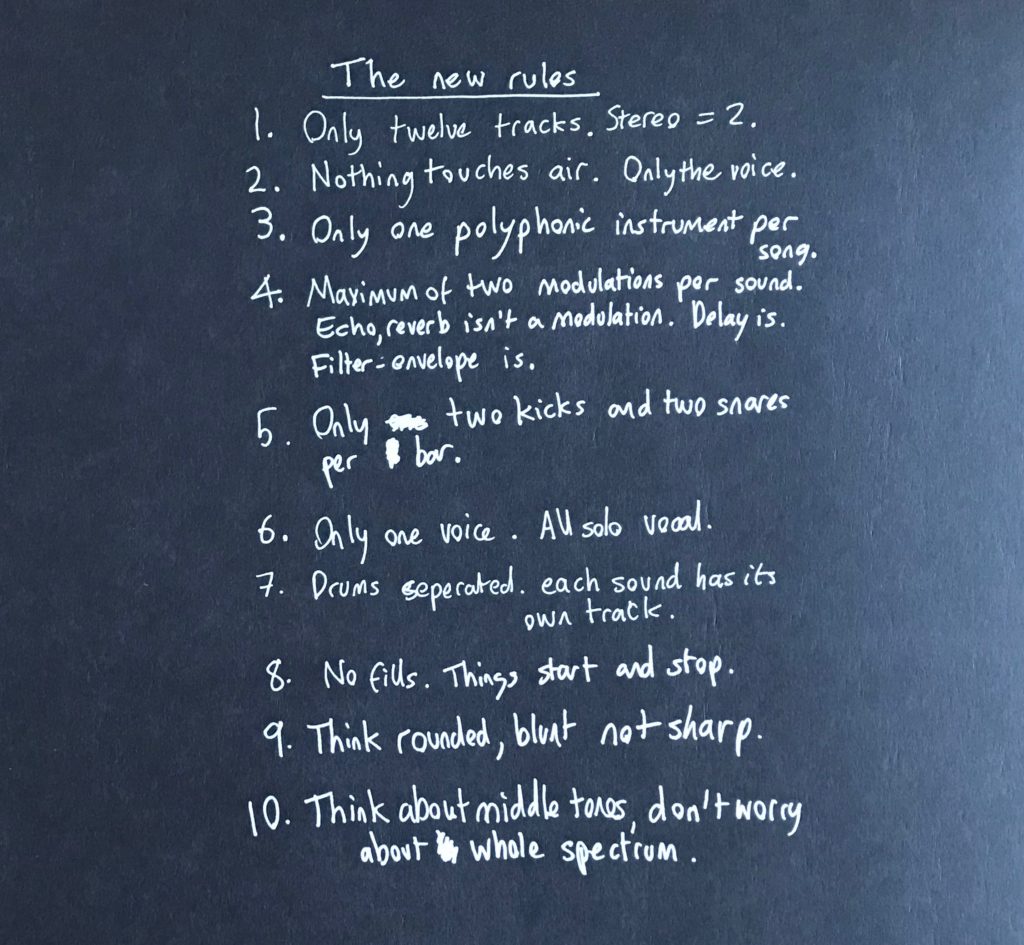 The new rules
1. Only twelve tracks. Stereo = 2.
2. Nothing touches air. Only the voice.
3. Only one polyphonic instrument per
song.
4. Maximum of two modulations per sound.
Echo, reverb isn't a modulation. Delay is.
Filter-envelope is.
5. Only two kicks and two snares
per bar.
6. Only one voice. All solo vocal.
7. Drums seperated. each sound has its
own track.
8. No fills. Things start and stop.
9. Think rounded, blunt not sharp.
10. Think about middle tones, don't worry
about whole spectrum.